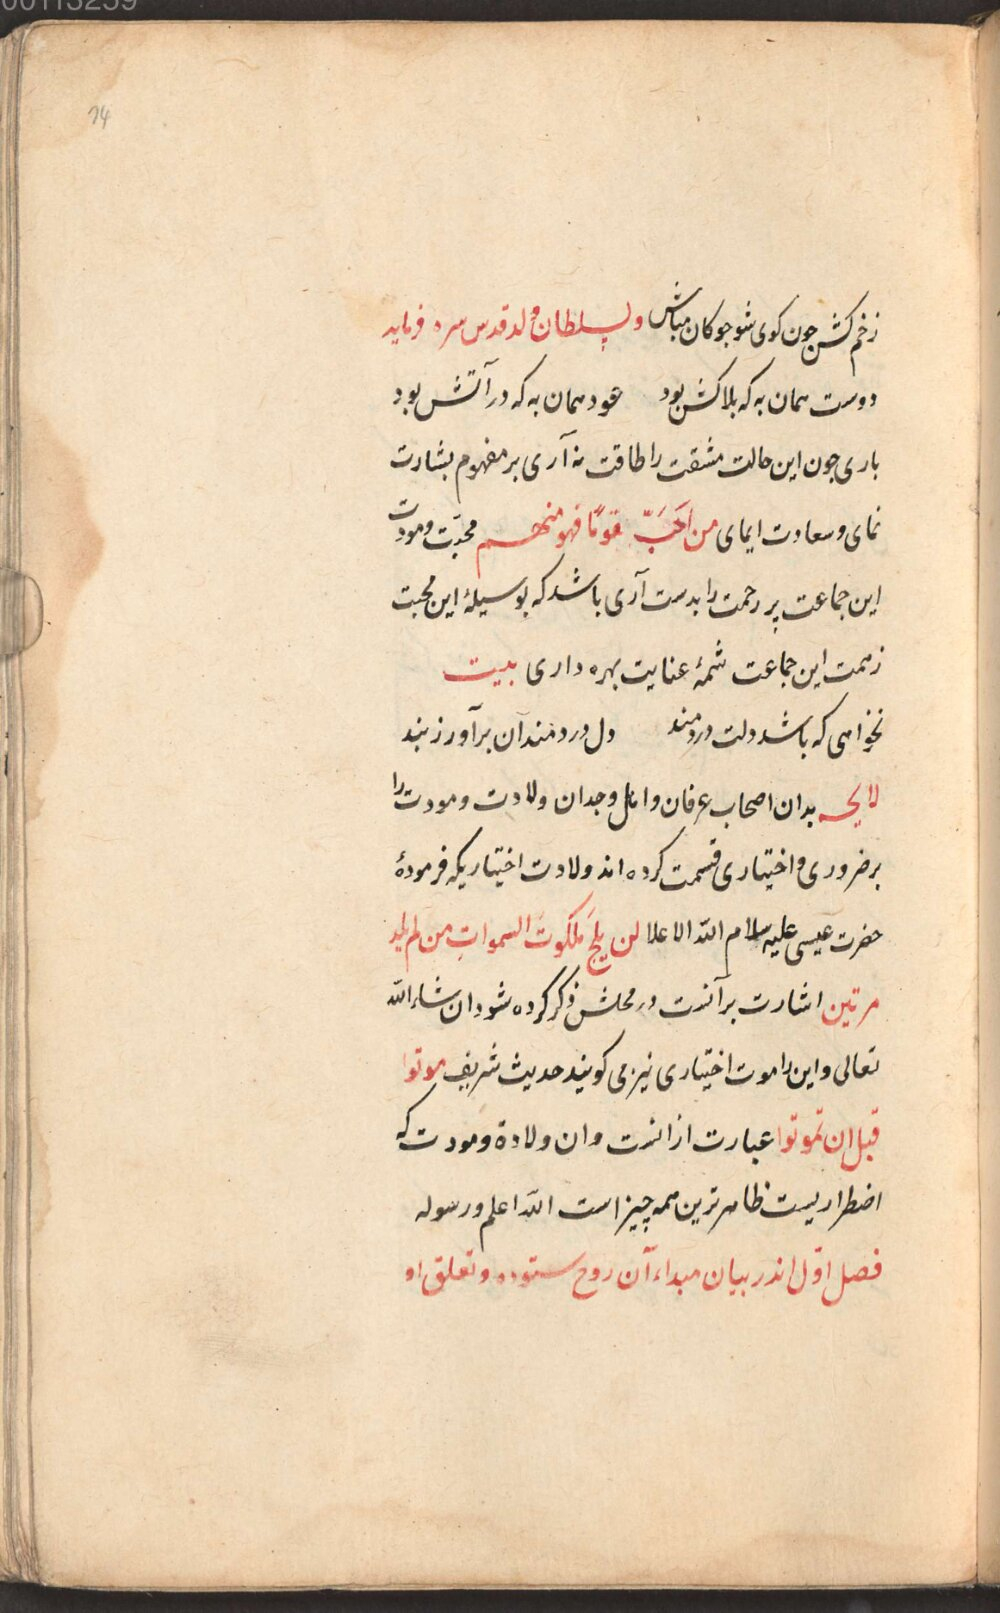 00113259
24
زخم کش جون کوی شو جوکان مباش و سلطان ولد قدس سره فرماید
دوست همان به که بلاکش بود عود همان به که در آتش بود
باری جون این حالت مشقت را طاقت نه آری بر مفهوم بشارت
نمای و سعادت ایمای من اَحَبَّ قومًا فهو منهم محبّت و مودت
این جماعت پر رحمت را بدست آری باشد که بوسیلهٔ این محبت
زهمت این جماعت شمهٔ عنایت بهره داری بیت
نخواهی که باشد دلت دردمند دل دردمندان برآور زبند
لایحه بدان اصحاب عرفان و اهل وجدان ولادت و مودت را
بر ضروری و اختیاری قسمت کرده اند ولادت اختیاریکه فرمودهٔ
حضرت عیسی علیه سلام الله الاعلا لن یلجَ ملکوتَ السمواتِ من لم یلد
مرتین اشارت بر آنست در محلش ذکر کرده شود ان شاء الله
تعالی و این را موت اختیاری نیز می کویند حدیث شریف موتوا
قبل ان تموتوا عبارت از انست و ان ولادة و مودت که
اضطراریست ظاهر ترین همه چیز است الله اعلم و رسوله
فصل اوّل اندر بیان مبداء آن روح ستوده و تعلق او